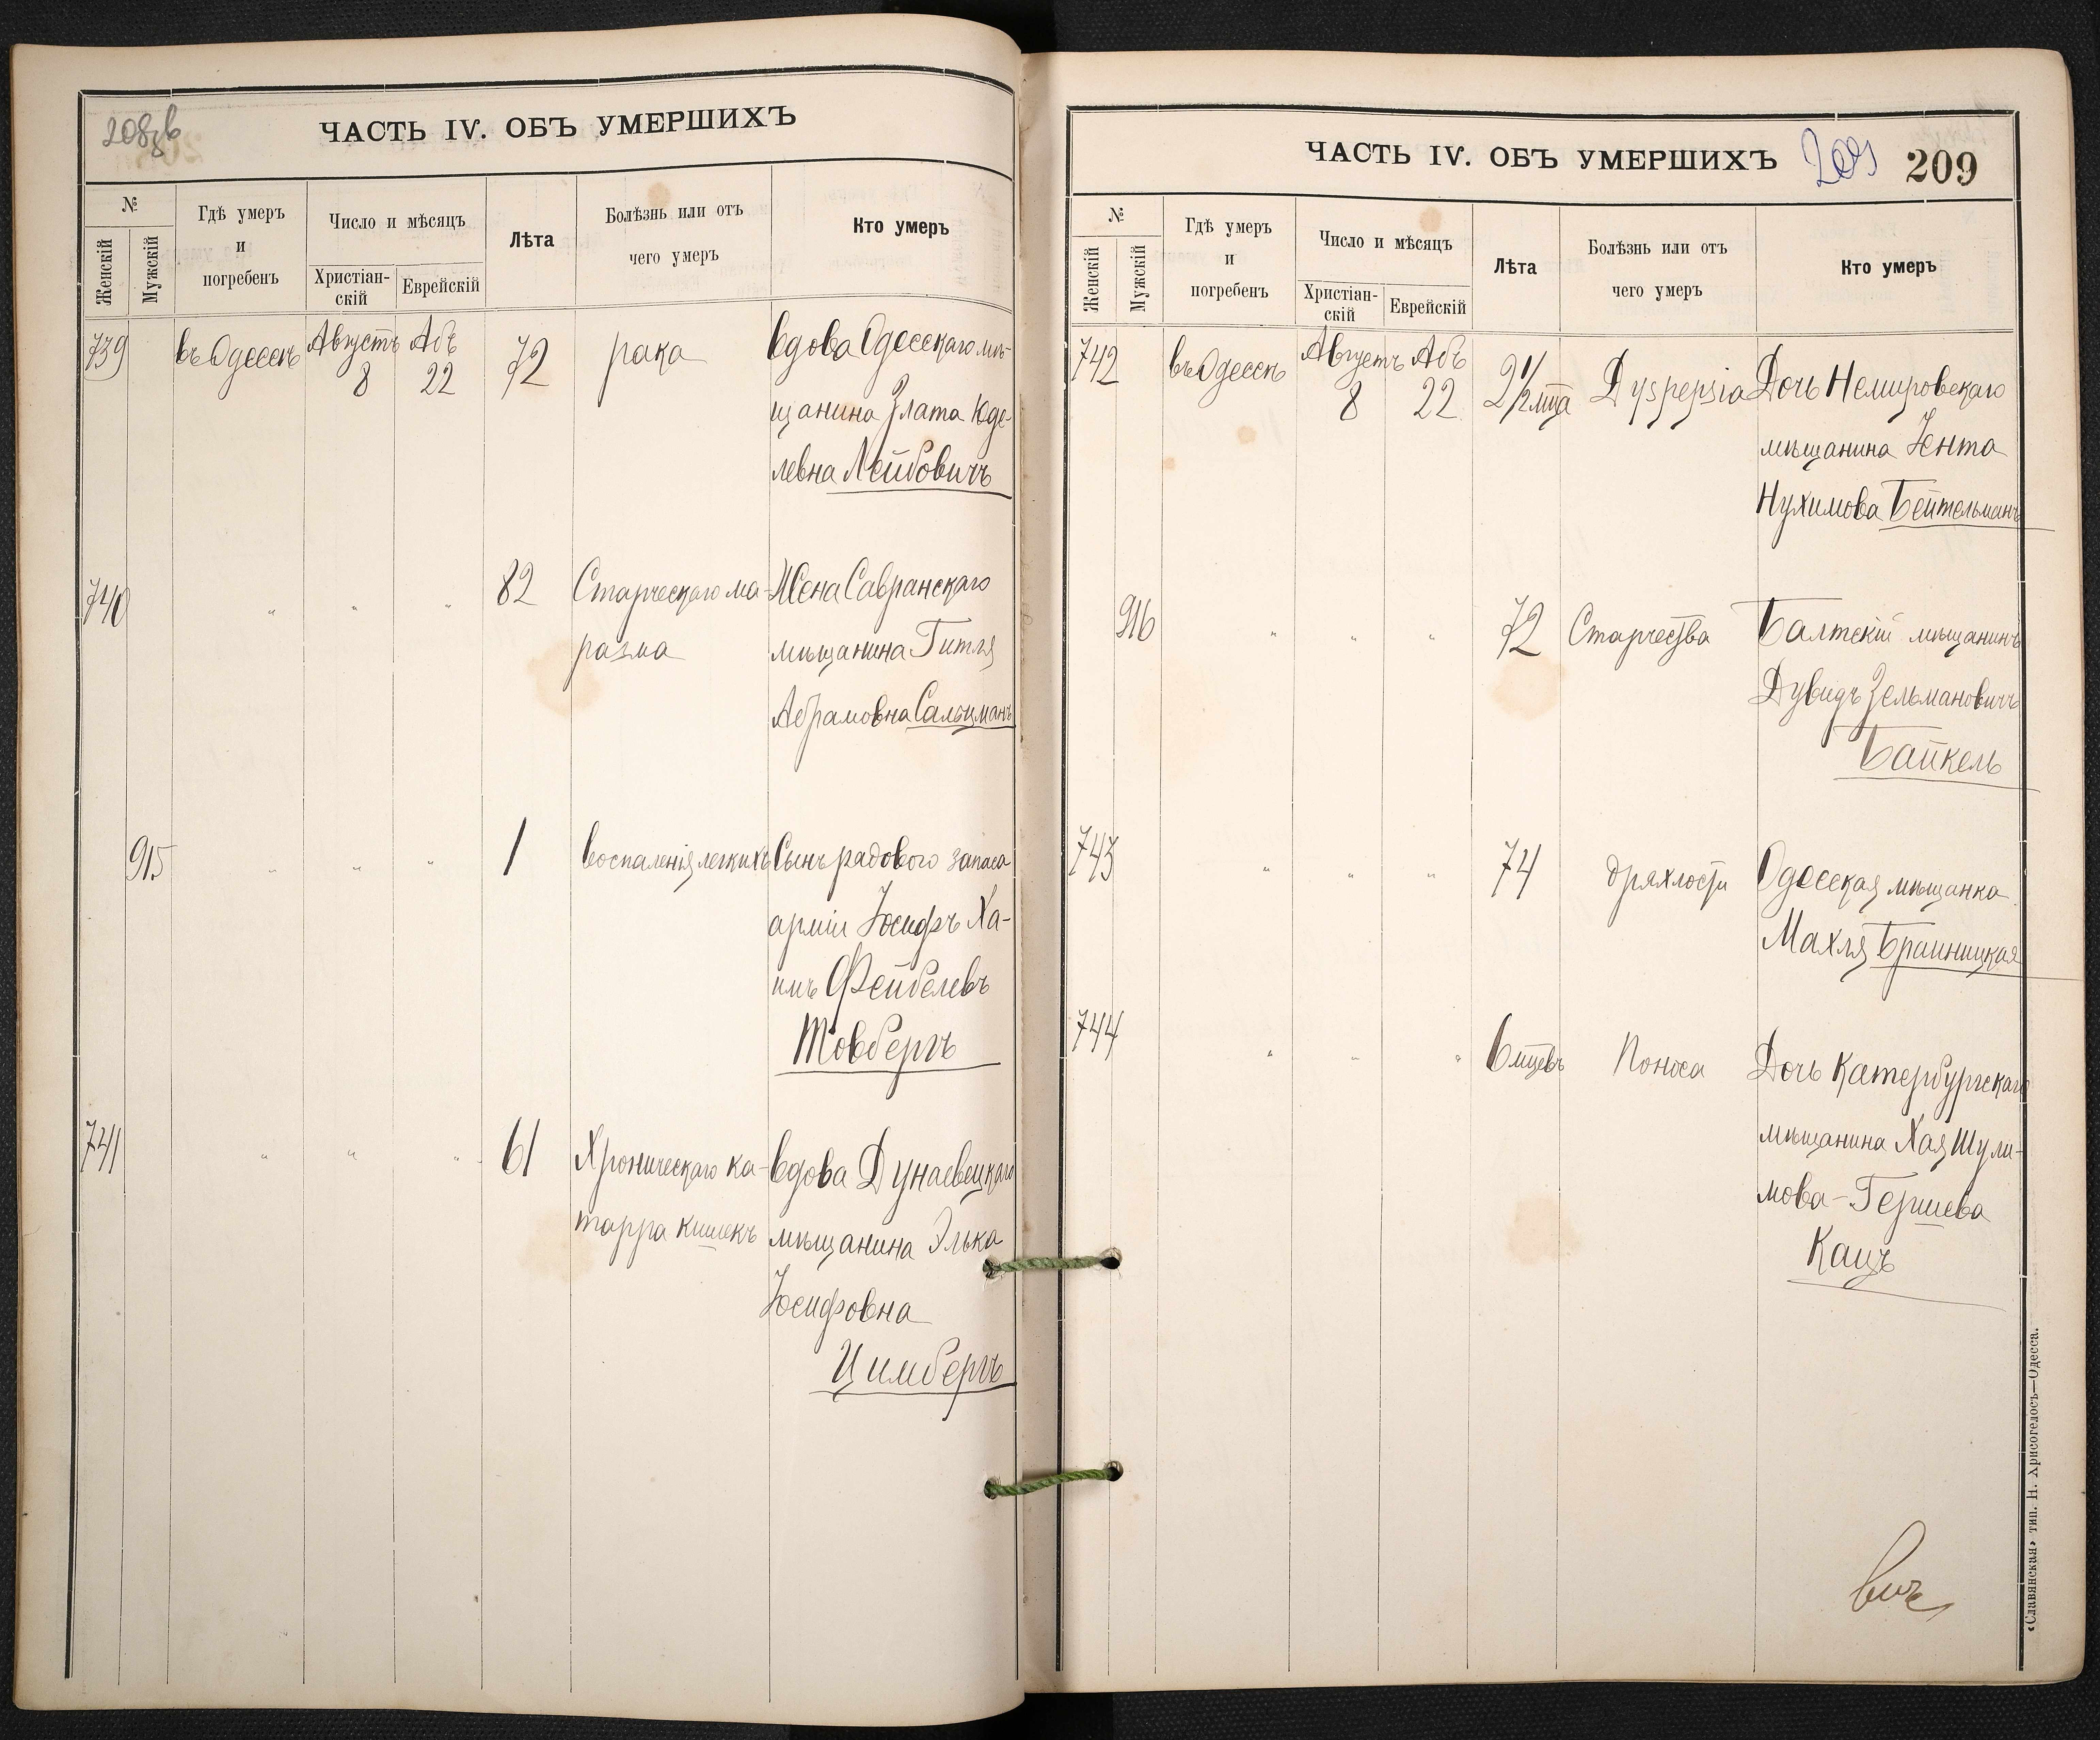 208зв
ЧАСТЬ IV. ОБЪ УМЕРШИХЪ
№
Женскій
Мужскій
Гдѣ умеръ
и
погребенъ
Число и мѣсяцъ
Христіан-
скій
Еврейскій
Лѣта
Болѣзнь или отъ
чего умеръ
Кто умеръ
739 въ Одессѣ Августъ Абъ 72 рака вдова Одесскаго мѣ-
8 22 щанина Злата Юде-
левна Лейбовичъ
740 " " " 82 Старческаго ма- Жена Савранскаго
разма мѣщанина Гитля
Абрамовна Сальцманъ
915 " " " 1 воспаленія легкихъ Сынъ рядового запаса
арміи Іосифъ Ха-
имъ Фейбелевъ
Товбергъ
741 " " " 61 Хроническаго ка- вдова Дунаевецкаго
тарра кишекъ мѣщанина Элька
Іосифовна
Цимбергъ
ЧАСТЬ IV. ОБЪ УМЕРШИХЪ 209 209
№
Женскій
Мужскій
Гдѣ умеръ
и
погребенъ
Число и мѣсяцъ
Христіан-
скій
Еврейскій
Лѣта
Болѣзнь или отъ
чего умеръ
Кто умеръ
742 въ Одессѣ Августъ Абъ 2 1/2 мца Dyspepsia Дочь Немировскаго
8 22 мѣщанина Іента
Нухимова Бейтельманъ
916 " " " 72 Старчества Балтскій мѣщанинъ
Дувидъ Зельмановичъ
Байкель
743 " " " 74 дряхлости Одесская мѣщанка
Махля Браиницкая
744 " " " 6 мцевъ Поноса Дочь Катербургскаго
мѣщанина Хая Шули-
мова-Гершева
Кацъ
«Славянская» тип. Н. Хрисогелосъ—Одесса.